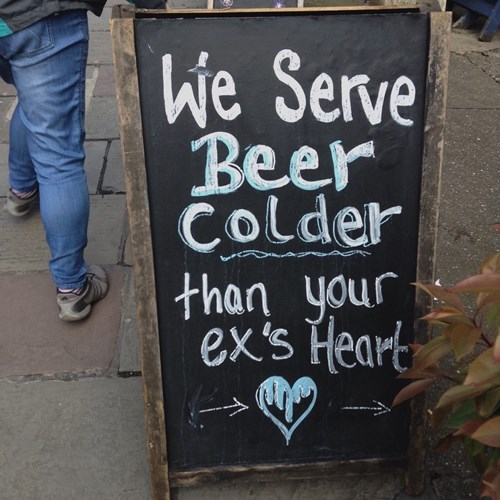 We Serve
Beer
Colder
than your
ex's Heart